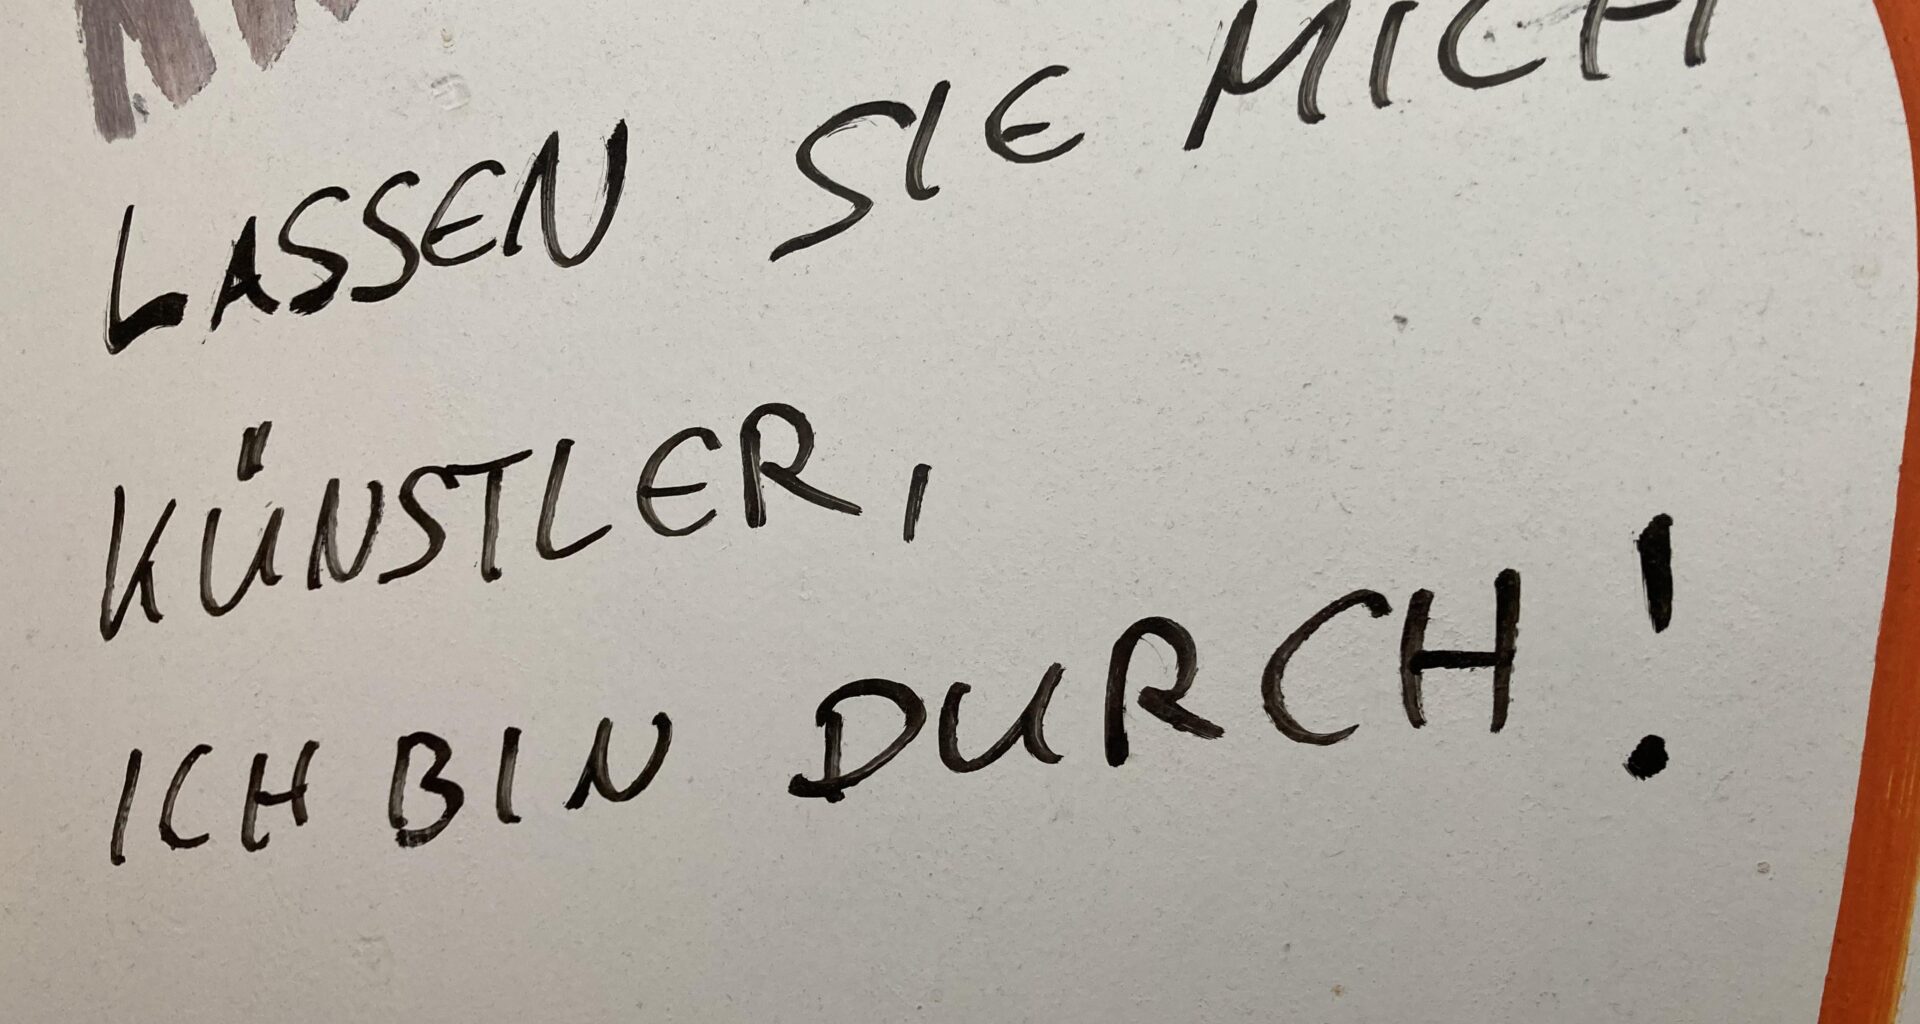 LASSEN SIE MICH
KÜNSTLER,
ICH BIN DURCH!